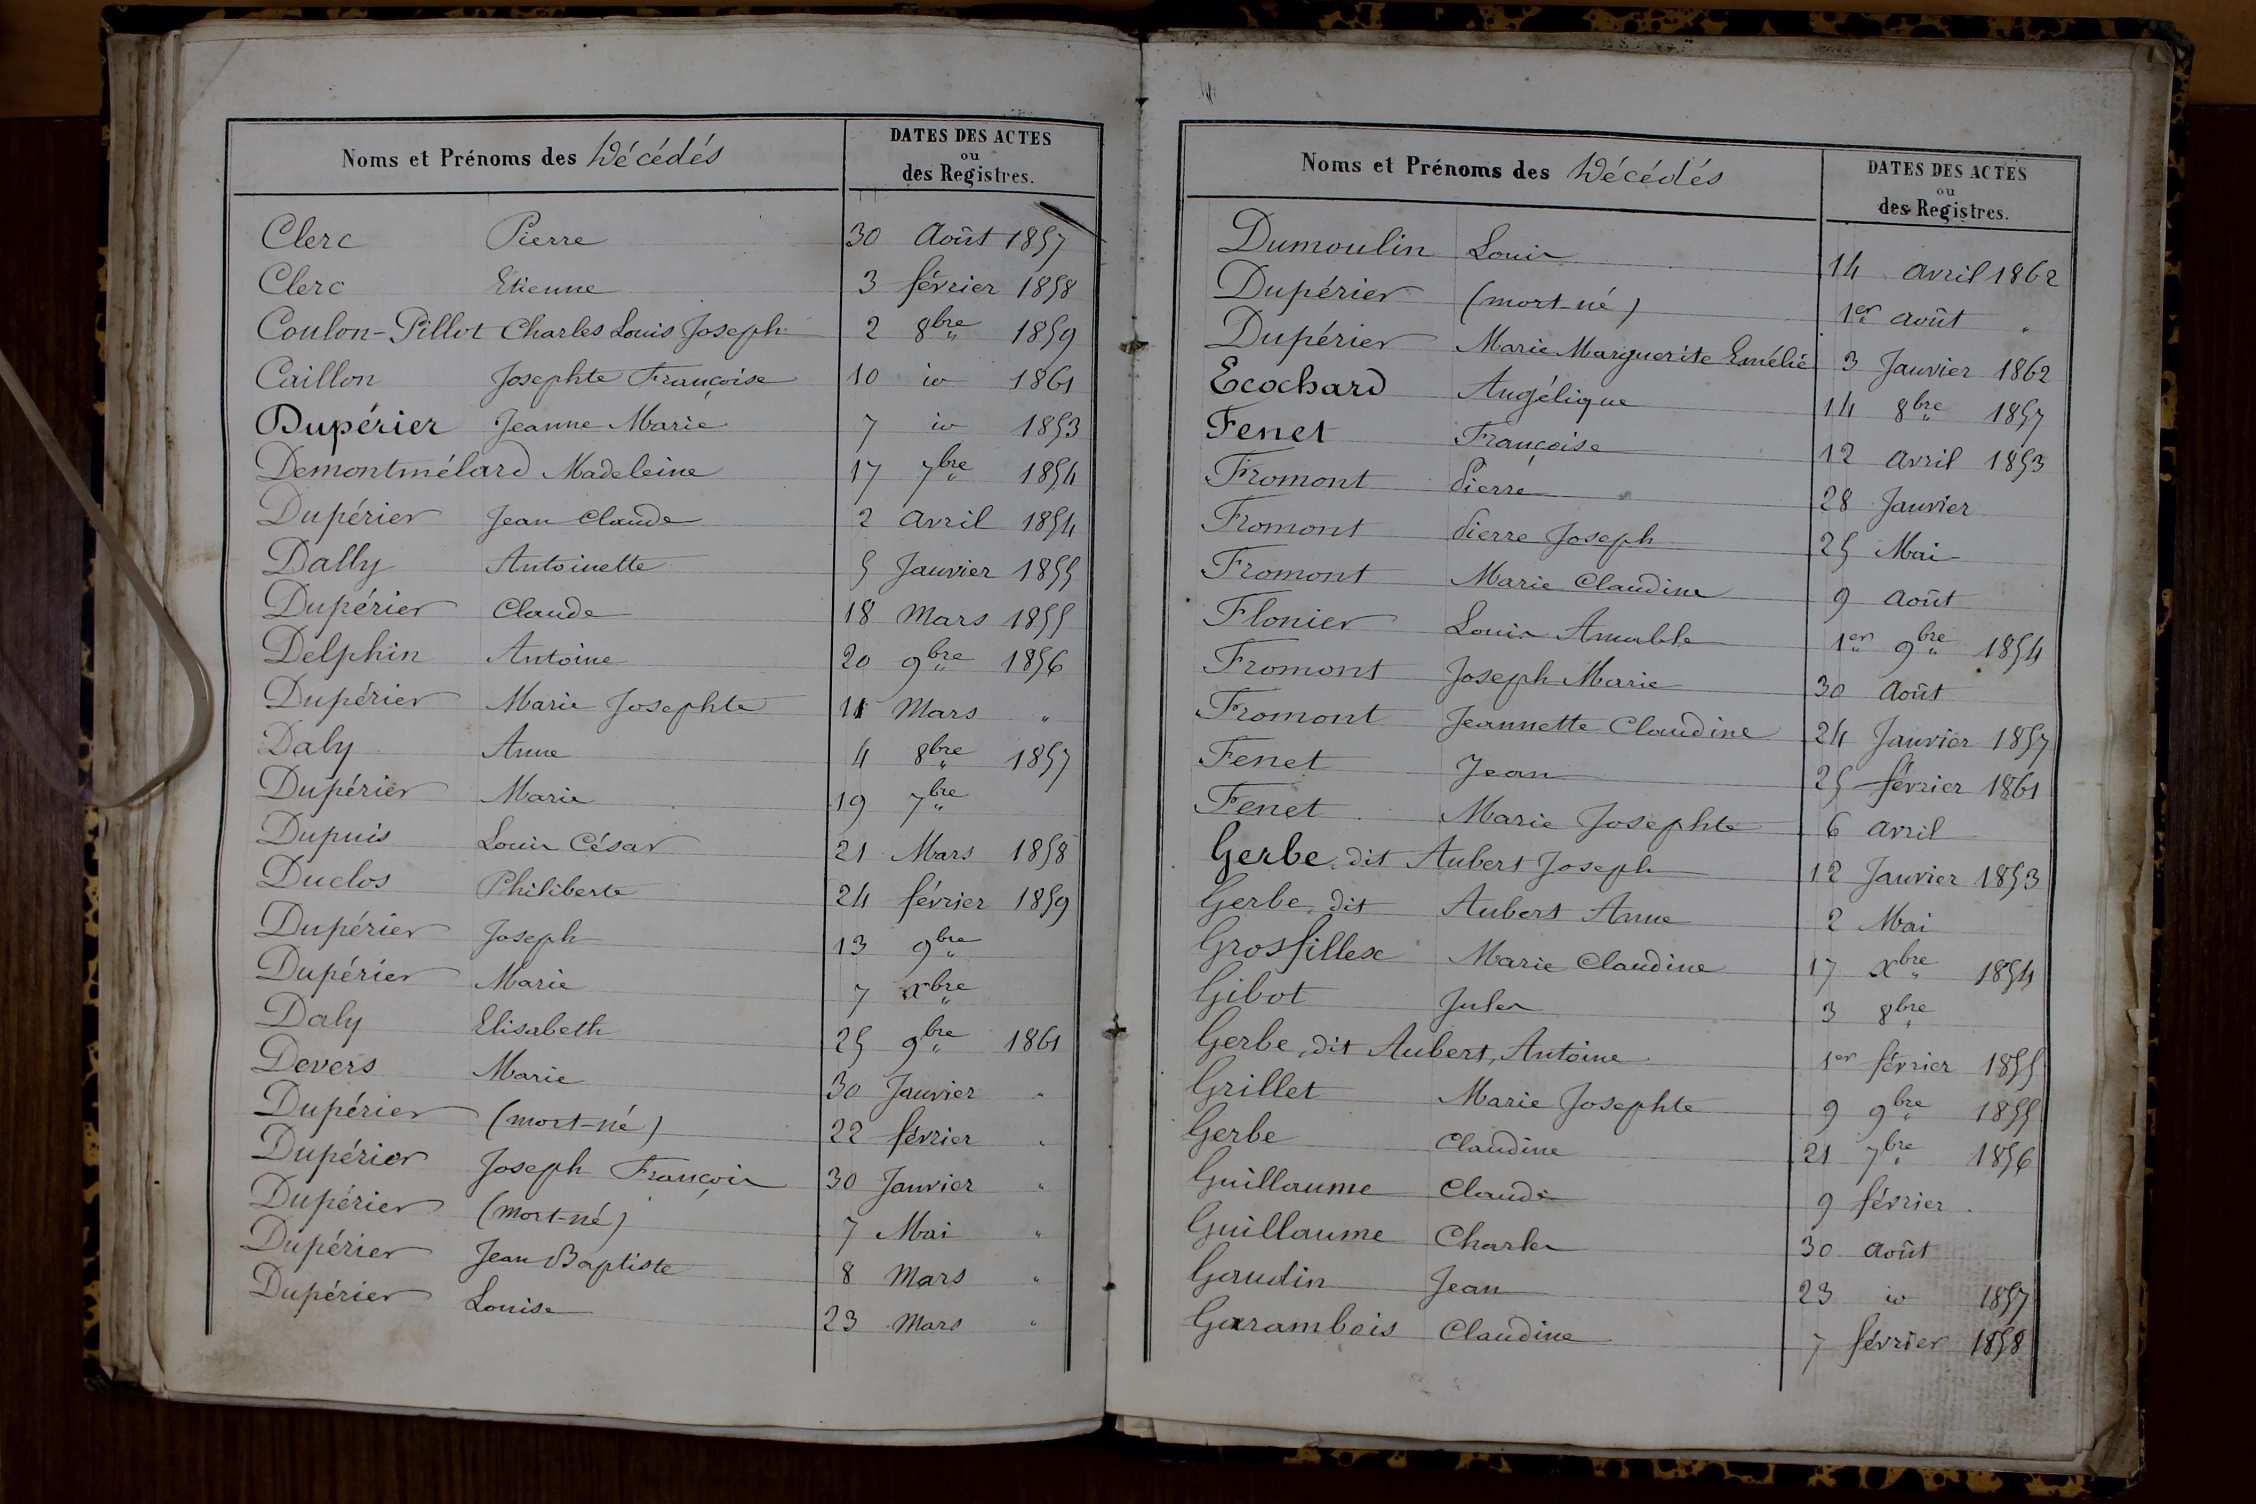 Noms et Prénoms des Décédés
DATES DES ACTES
ou
des Registres.
Clerc Pierre 30 Août 1857
Clerc Etienne 3 février 1858
Coulon-Pillot Charles Louis Joseph 2 8bre 1859
Caillon Josephte Françoise 10 io 1861
Dupérier Jeanne Marie 7 io 1853
Demontmélard Madeleine 17 7bre 1854
Dupérier Jean Claude 2 Avril 1854
Dally Antoinette 5 Janvier 1855
Dupérier Claude 18 Mars 1855
Delphin Antoine 20 9bre 1856
Dupérier Marie Josephte 11 Mars "
Daly Anne 4 8bre 1857
Dupérier Marie 19 7bre
Dupuis Louis César 21 Mars 1858
Duclos Philiberte 24 février 1859
Dupérier Joseph 13 9bre
Dupérier Marie 7 xbre
Daly Elisabeth 25 9bre 1861
Devers Marie 30 Janvier "
Dupérier (mort-né) 22 février "
Dupérier Joseph François 30 Janvier "
Dupérier (mort-né) 7 Mai "
Dupérier Jean Baptiste 8 Mars "
Dupérier Louise 23 Mars "
Noms et Prénoms des Décédés
DATES DES ACTES
ou
des Registres.
Dumoulin Louis 14 avril 1862
Dupérier (mort-né) 1er août "
Dupérier Marie Marguerite Emélie 3 Janvier 1862
Ecochard Angélique 14 8bre 1857
Fenet Françoise 12 avril 1853
Fromont Pierre 28 Janvier
Fromont Pierre Joseph 25 Mai
Fromont Marie Claudine 9 août
Flonier Louis Amable 1er 9bre 1854
Fromont Joseph Marie 30 Août
Fromont Jeannette Claudine 24 Janvier 1857
Fenet Jean 25 février 1861
Fenet Marie Josephte 6 avril
Gerbe, dit Aubert Joseph 12 Janvier 1853
Gerbe, dit Aubert Anne 2 Mai
Grosfillex Marie Claudine 17 xbre 1854
Gibot Jules 3 8bre
Gerbe, dit Aubert, Antoine 1er février 1855
Grillet Marie Josephte 9 9bre 1855
Gerbe Claudine 21 7bre 1856
Guillaume Claude 9 février
Guillaume Charles 30 août
Gaudin Jean 23 io 1857
Garambois Claudine 7 février 1858